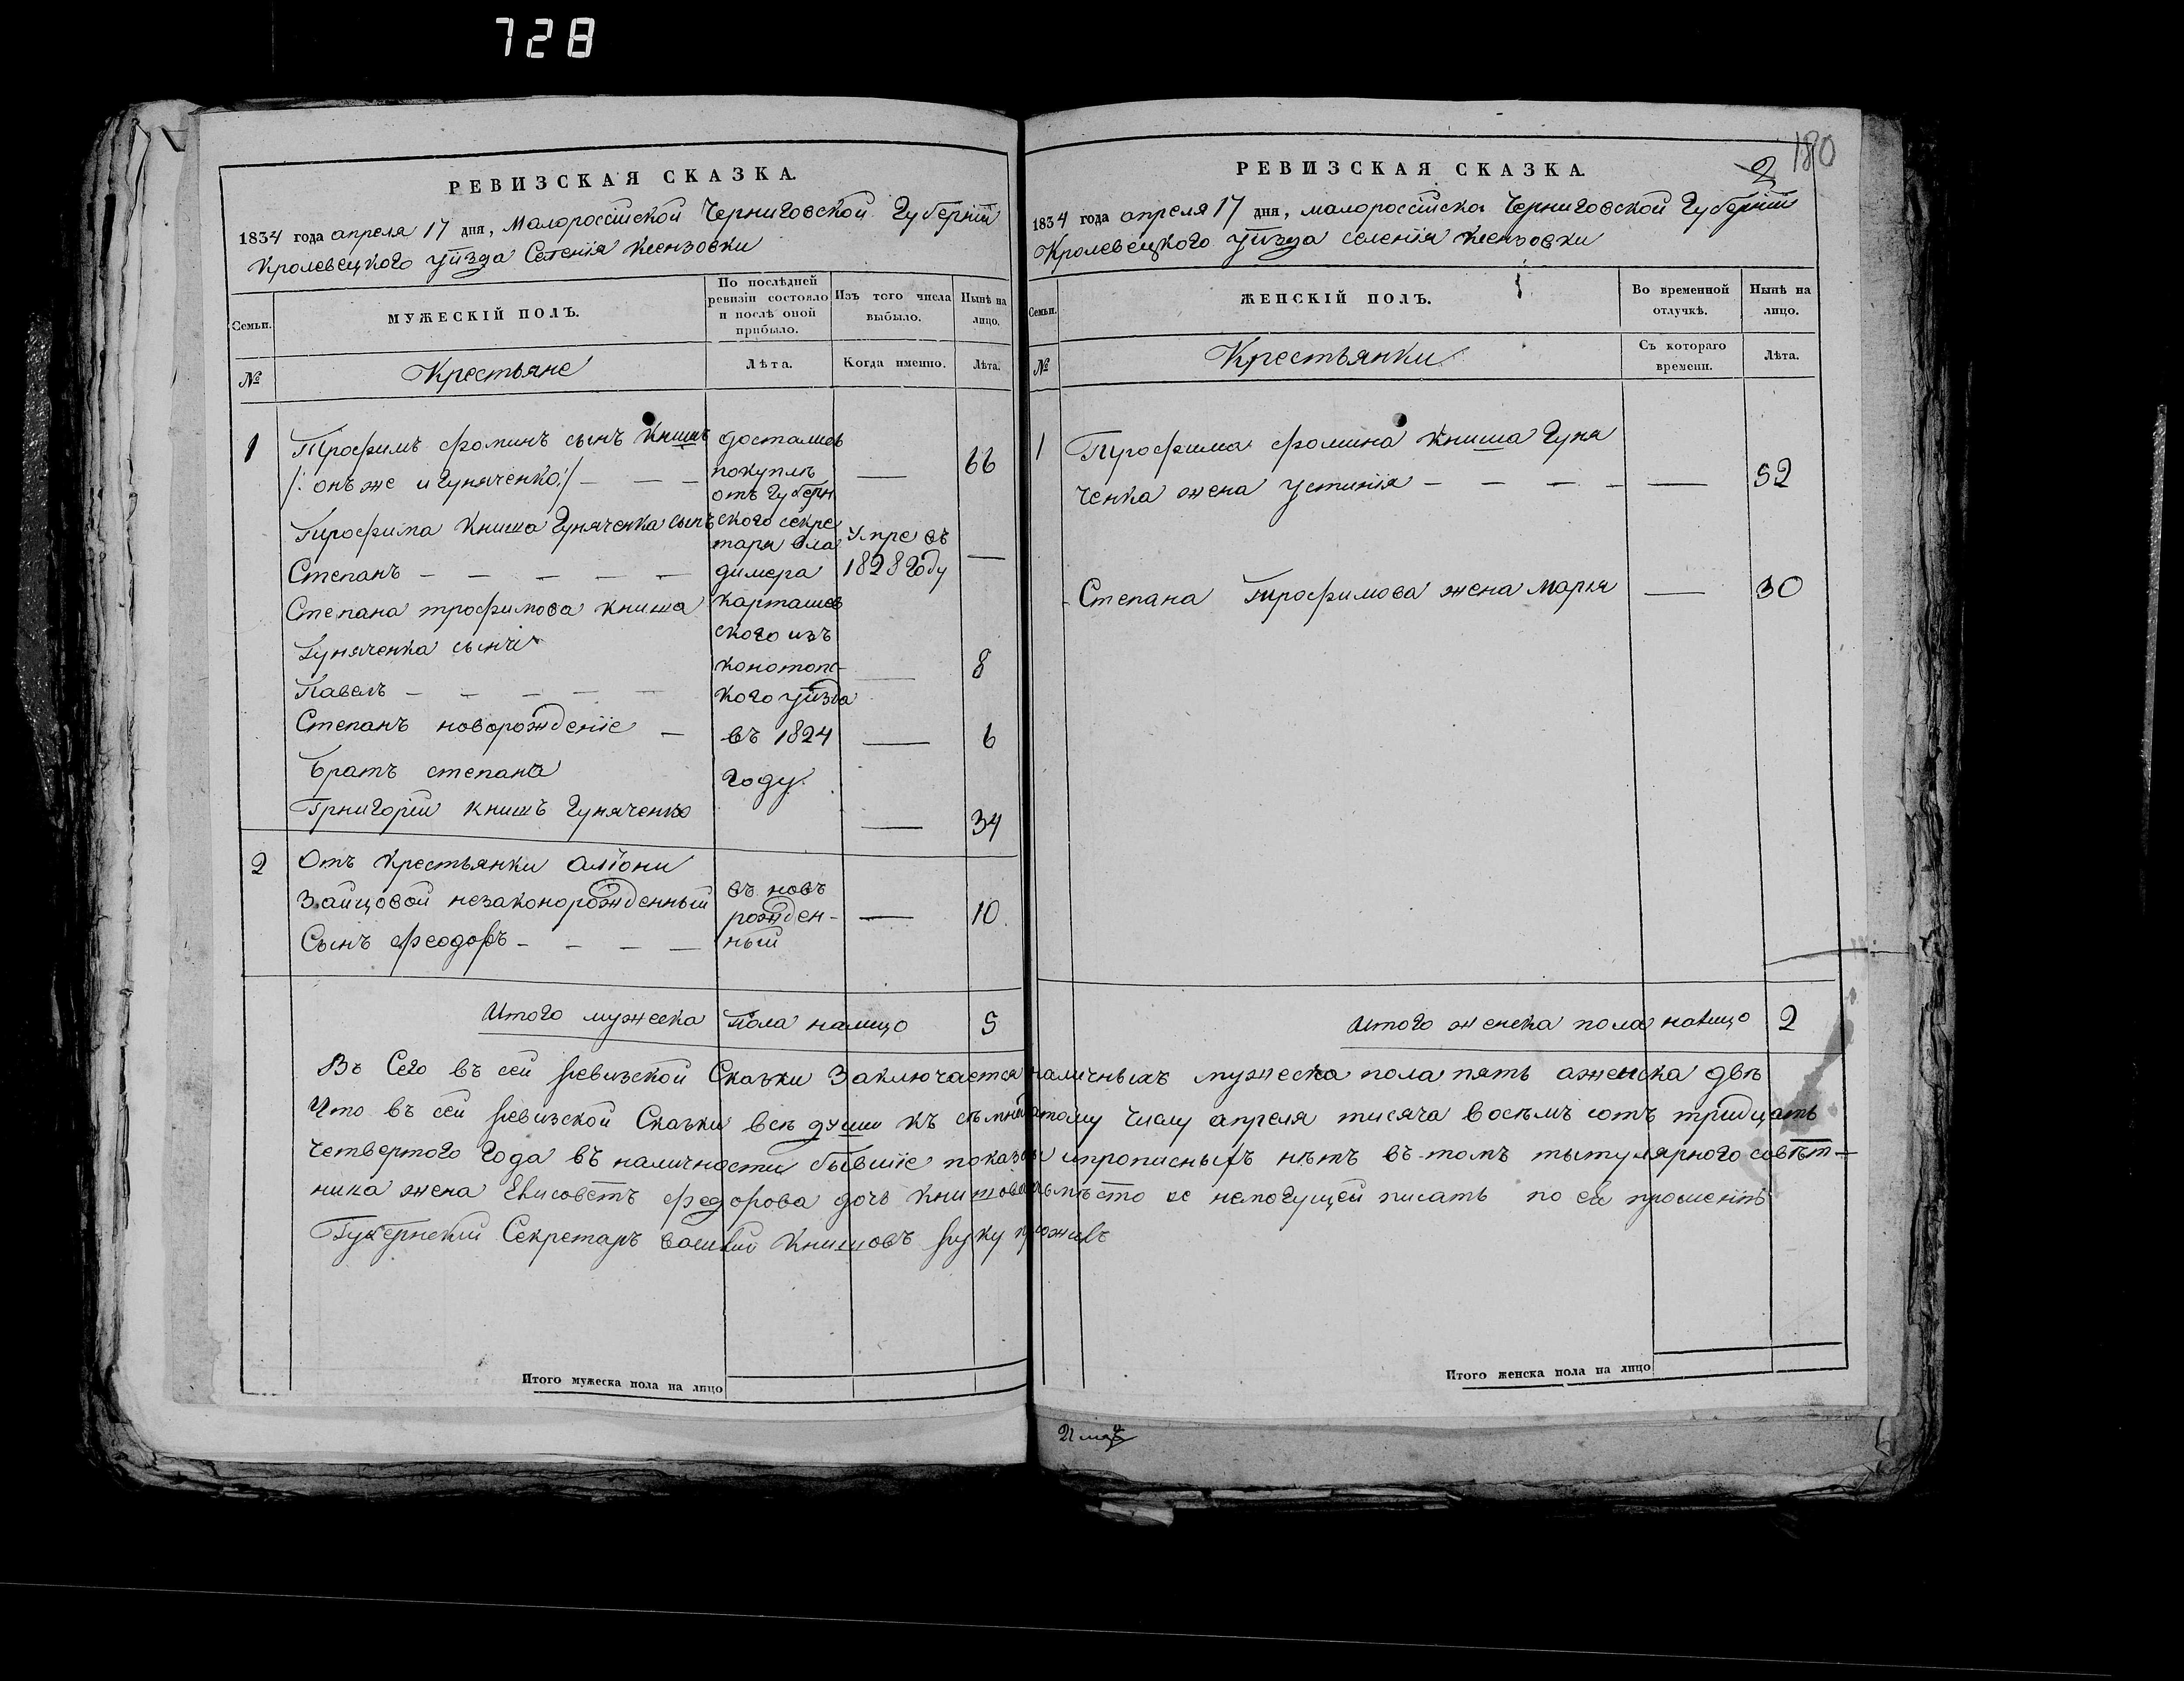 728
180
2
РЕВИЗСКАЯ СКАЗКА.
1834 года апреля 17 дня, Малороссійской Черниговской Губерніи
Кролевецкого уѣзда Селенія Ксензовки
Семьи.
МУЖЕСКІЙ ПОЛЪ.
По послѣдней ревизіи состояло и послѣ оной прибыло.
Изъ того числа выбыло.
Нынѣ на лицо.
№
Крестьяне
Лѣта.
Когда именно.
Лѣта.
1 Трофимъ фоминъ сынъ Книшъ
/: онъ же и Гуняченко :/ — — — — 66
Трофима Книша Гуняченка сынъ
Степанъ — — — — — Умре въ 1828 Году —
Степана трофимова книша
Гуняченка сынъ
Павелъ — — — — — — 8
Степанъ новорожденіе — — 6
Братъ степана
Григорій книшъ Гуняченко — 34
досталис
покупля
отъ Губерн
ского секре
таря Вла
димера
Карташев
ского изъ
конотопс-
кого уѣзда
въ 1824
году.
2 Отъ крестьянки Аліони
Зайцовой незаконорожденный
Сынъ феодоръ — — — — — 10.
въ новъ
рожден-
ный
Итого мужеска Пола налицо 5
РЕВИЗСКАЯ СКАЗКА.
1834 года апреля 17 дня, малоросійска Черниговской Губерніи
Кролевецкого уѣзда селенія Ксензовки
Семьи.
ЖЕНСКІЙ ПОЛЪ.
Во временной отлучкѣ.
Нынѣ на лицо.
№
Крестьянки
Съ котораго времени.
Лѣта.
1 Трофима фомина книша Гуня
ченка жена Устинія — — — — — 52
Степана Трофимова жена Марія — 30
Итого женска пола налицо 2
Въ Сего въ сей ревизской Сказки Заключается наличныхъ мужеска пола пять аженска двѣ
Что въ сей ревизской Сказки всѣ души къ семнатцатому числу апреля тисяча восѣмъ сотъ тридцать
Четвертого Года въ наличности бывшіе показаны ипрописныхъ нѣтъ въ томъ тытулярного совѣт-
ника жена Елисоветъ федорова дочь Книшова вмѣсто ее немогущей писать по ея прошенію
Губернскій Секретаръ василий Книшовъ руку приложилъ
Итого мужеска пола на лицо
Итого женска пола на лицо